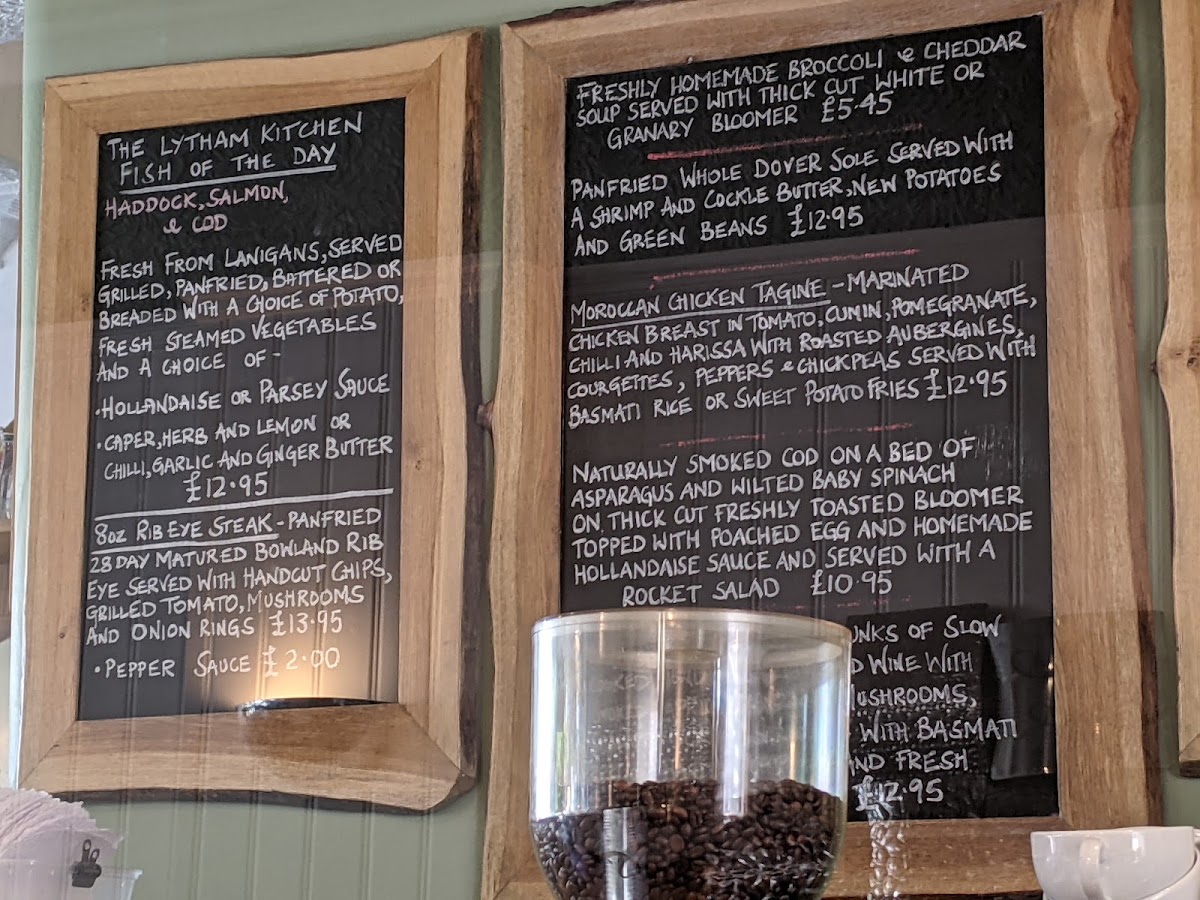 THE LYTHAM KITCHEN
FISH OF THE DAY
HADDOCK, SALMON,
& COD
FRESH FROM LANIGANS, SERVED
GRILLED, PANFRIED, BATTERED OR
BREADED WITH A CHOICE OF POTATO,
FRESH STEAMED VEGETABLES
AND A CHOICE OF -
• HOLLANDAISE OR PARSEY SAUCE
• CAPER, HERB AND LEMON OR
CHILLI, GARLIC AND GINGER BUTTER
£12.95
8oz RIB EYE STEAK - PANFRIED
28 DAY MATURED BOWLAND RIB
EYE SERVED WITH HANDCUT CHIPS,
GRILLED TOMATO, MUSHROOMS
AND ONION RINGS £13.95
• PEPPER SAUCE £2.00
FRESHLY HOMEMADE BROCCOLI & CHEDDAR
SOUP SERVED WITH THICK CUT WHITE OR
GRANARY BLOOMER £5.45
PANFRIED WHOLE DOVER SOLE SERVED WITH
A SHRIMP AND COCKLE BUTTER, NEW POTATOES
AND GREEN BEANS £12.95
MOROCCAN CHICKEN TAGINE - MARINATED
CHICKEN BREAST IN TOMATO, CUMIN, POMEGRANATE,
CHILLI AND HARISSA WITH ROASTED AUBERGINES,
COURGETTES, PEPPERS & CHICKPEAS SERVED WITH
BASMATI RICE OR SWEET POTATO FRIES £12.95
NATURALLY SMOKED COD ON A BED OF
ASPARAGUS AND WILTED BABY SPINACH
ON THICK CUT FRESHLY TOASTED BLOOMER
TOPPED WITH POACHED EGG AND HOMEMADE
HOLLANDAISE SAUCE AND SERVED WITH A
ROCKET SALAD £10.95
UNKS OF SLOW
D WINE WITH
MUSHROOMS,
WITH BASMATI
AND FRESH
£12.95